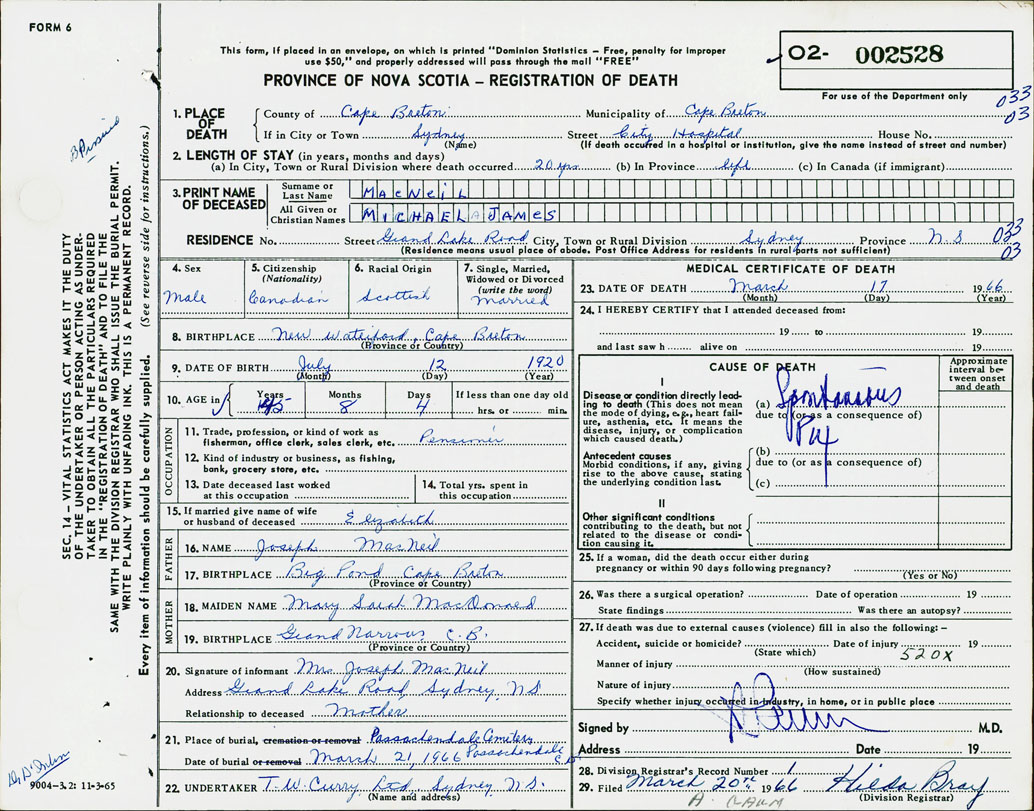 FORM 6
This form, if placed in an envelope, on which is printed "Dominion Statistics – Free, penalty for improper
use $50," and properly addressed will pass through the mail "FREE"
PROVINCE OF NOVA SCOTIA – REGISTRATION OF DEATH
02- 002528
For use of the Department only
033
03
1. PLACE OF DEATH County of Cape Breton Municipality of Cape Breton
If in City or Town Sydney Street City Hospital House No.
(Name) (If death occurred in a hospital or institution, give the name instead of street and number)
2. LENGTH OF STAY (in years, months and days)
(a) In City, Town or Rural Division where death occurred. 20 yrs. (b) In Province life (c) In Canada (if immigrant)
3. PRINT NAME OF DECEASED Surname or Last Name MacNeil
All Given or Christian Names MICHAEL JAMES
RESIDENCE No. Street Grand Lake Road City, Town or Rural Division Sydney Province N.S 033
(Residence means usual place of abode. Post Office Address for residents in rural parts not sufficient) 03
4. Sex Male
5. Citizenship (Nationality) Canadian
6. Racial Origin Scottish
7. Single, Married, Widowed or Divorced (write the word) married
8. BIRTHPLACE New Waterford, Cape Breton
(Province or Country)
9. DATE OF BIRTH July 12 1920
(Month) (Day) (Year)
10. AGE in Years 45 Months 8 Days 4 If less than one day old hrs. or min.
OCCUPATION
11. Trade, profession, or kind of work as fisherman, office clerk, sales clerk, etc. Pensioner
12. Kind of industry or business, as fishing, bank, grocery store, etc.
13. Date deceased last worked at this occupation
14. Total yrs. spent in this occupation
15. If married give name of wife or husband of deceased Elizabeth
FATHER
16. NAME Joseph MacNeil
17. BIRTHPLACE Big Pond Cape Breton
(Province or Country)
MOTHER
18. MAIDEN NAME Mary Sarah MacDonald
19. BIRTHPLACE Grand Narrows C.B.
(Province or Country)
20. Signature of informant Mrs Joseph MacNeil
Address Grand Lake Road, Sydney NS
Relationship to deceased Mother
21. Place of burial, cremation or removal Passchendale Cemetery
Date of burial or removal March 21, 1966 Passachendale C.B.
22. UNDERTAKER T.W. Curry Ltd Sydney N.S.
(Name and address)
MEDICAL CERTIFICATE OF DEATH
23. DATE OF DEATH March 17 1966
(Month) (Day) (Year)
24. I HEREBY CERTIFY that I attended deceased from:
19 to 19
and last saw h alive on 19
CAUSE OF DEATH
Approximate interval between onset and death
I
Disease or condition directly leading to death (This does not mean the mode of dying, e.g., heart failure, asthenia, etc. It means the disease, injury, or complication which caused death.)
(a) Spontaneous
due to (or as a consequence of)
Px
Antecedent causes
Morbid conditions, if any, giving rise to the above cause, stating the underlying condition last.
(b)
due to (or as a consequence of)
(c)
II
Other significant conditions
contributing to the death, but not related to the disease or condition causing it.
25. If a woman, did the death occur either during pregnancy or within 90 days following pregnancy?
(Yes or No)
26. Was there a surgical operation? Date of operation 19
State findings Was there an autopsy?
27. If death was due to external causes (violence) fill in also the following:–
Accident, suicide or homicide? Date of injury 19
(State which) 520X
Manner of injury
(How sustained)
Nature of injury
Specify whether injury occurred in industry, in home, or in public place
Signed by M.D.
Address Date 19
28. Division Registrar's Record Number 1
29. Filed March 20th 1966 Hilda Bray
(Division Registrar)
SEC. 14 – VITAL STATISTICS ACT MAKES IT THE DUTY
OF THE UNDERTAKER OR PERSON ACTING AS UNDER-
TAKER TO OBTAIN ALL THE PARTICULARS REQUIRED
IN THE "REGISTRATION OF DEATH" AND TO FILE THE
SAME WITH THE DIVISION REGISTRAR WHO SHALL ISSUE THE BURIAL PERMIT.
WRITE PLAINLY WITH UNFADING INK. THIS IS A PERMANENT RECORD.
Every item of information should be carefully supplied. (See reverse side for instructions.)
9004-3.2: 11-3-65